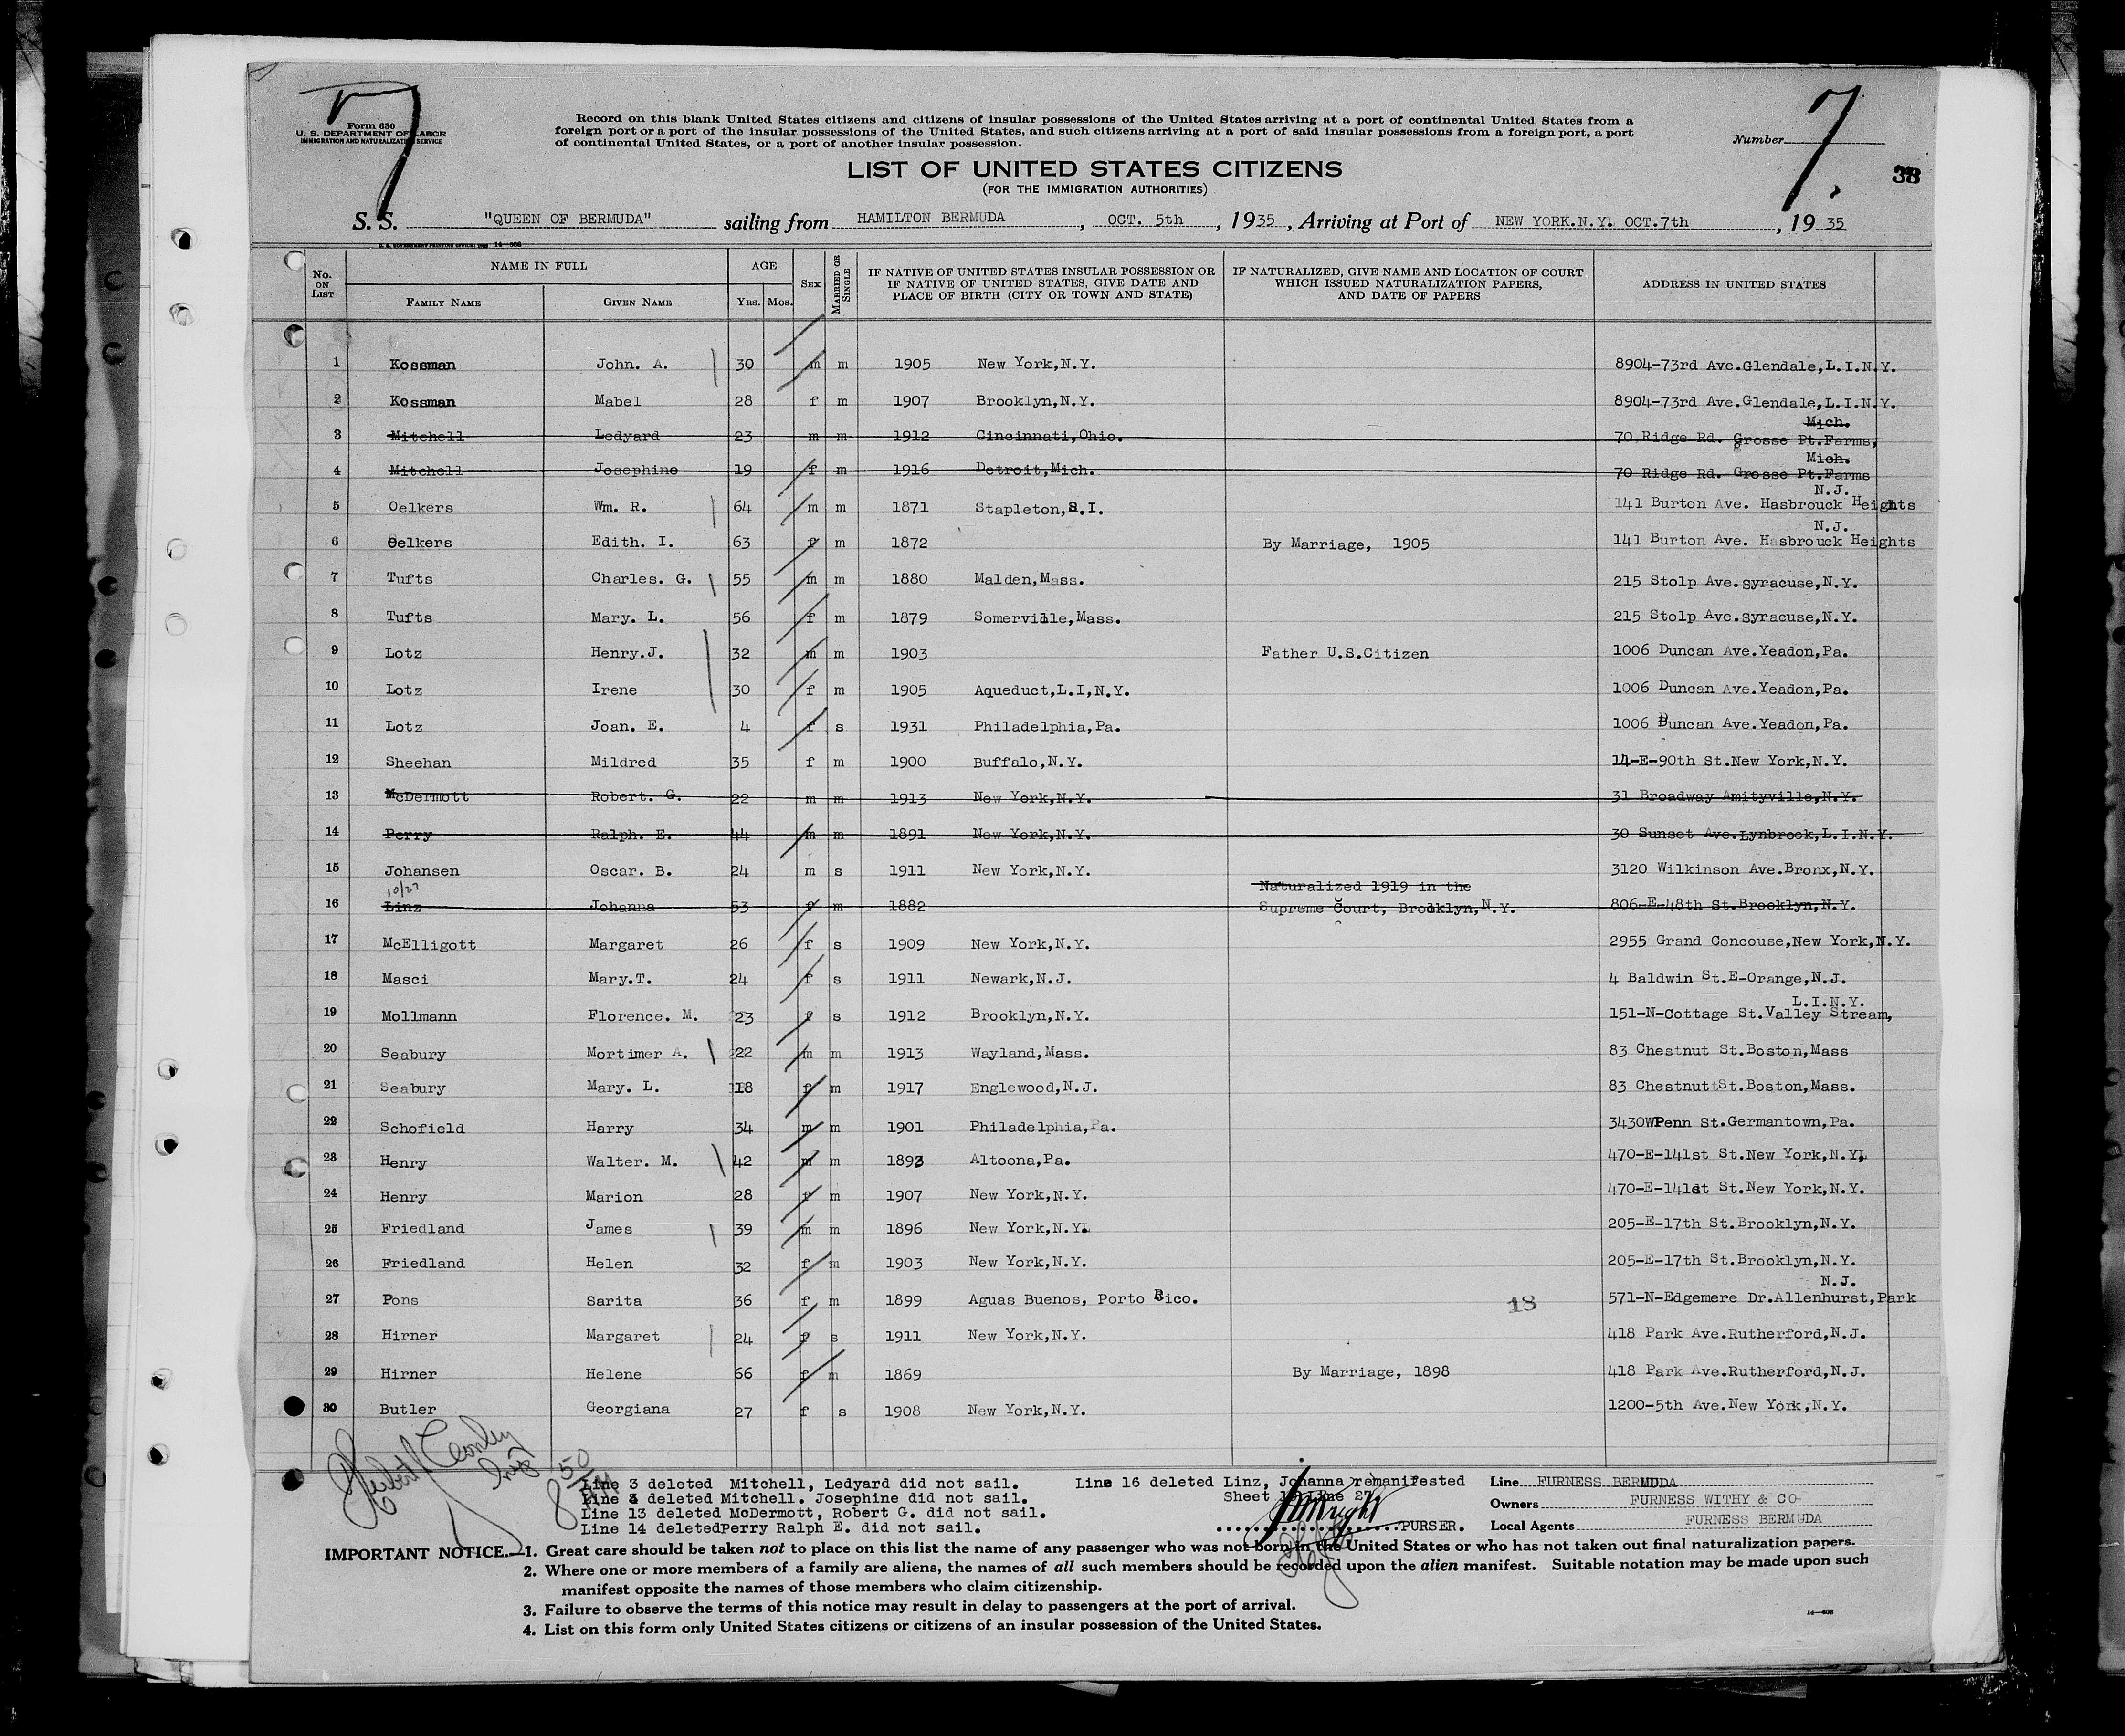 7
7.
Form 630
U. S. DEPARTMENT OF LABOR
IMMIGRATION AND NATURALIZATION SERVICE
Record on this blank United States citizens and citizens of insular possessions of the United States arriving at a port of continental United States from a
foreign port or a port of the insular possessions of the United States, and such citizens arriving at a port of said insular possessions from a foreign port, a port
of continental United States, or a port of another insular possession.
Number
LIST OF UNITED STATES CITIZENS
(FOR THE IMMIGRATION AUTHORITIES)
S. S. "QUEEN OF BERMUDA" sailing from HAMILTON BERMUDA, OCT. 5th, 1935, Arriving at Port of NEW YORK.N.Y. OCT.7th, 19 35
No. ON LIST NAME IN FULL AGE SEX MARRIED OR SINGLE IF NATIVE OF UNITED STATES INSULAR POSSESSION OR IF NATIVE OF UNITED STATES, GIVE DATE AND PLACE OF BIRTH (CITY OR TOWN AND STATE) IF NATURALIZED, GIVE NAME AND LOCATION OF COURT WHICH ISSUED NATURALIZATION PAPERS, AND DATE OF PAPERS ADDRESS IN UNITED STATES
FAMILY NAME GIVEN NAME YRS. MOS.
1 Kossman John. A. 30 m m 1905 New York,N.Y. 8904-73rd Ave.Glendale,L.I.N.Y.
2 Kossman Mabel 28 f m 1907 Brooklyn,N.Y. 8904-73rd Ave.Glendale,L.I.N.Y.
Mich.
3 Mitchell Ledyard 23 m m 1912 Cincinnati,Ohio. 70 Ridge Rd. Grosse Pt.Farms,
Mich.
4 Mitchell Josephine 19 f m 1916 Detroit,Mich. 70 Ridge Rd. Grosse Pt.Farms
N.J.
5 Oelkers Wm. R. 64 m m 1871 Stapleton,S.I. 141 Burton Ave. Hasbrouck Heights
N.J.
6 Oelkers Edith. I. 63 f m 1872 By Marriage, 1905 141 Burton Ave. Hasbrouck Heights
7 Tufts Charles. G. 55 m m 1880 Malden,Mass. 215 Stolp Ave.syracuse,N.Y.
8 Tufts Mary. L. 56 f m 1879 Somerville,Mass. 215 Stolp Ave.syracuse,N.Y.
9 Lotz Henry.J. 32 m m 1903 Father U.S.Citizen 1006 Duncan Ave.Yeadon,Pa.
10 Lotz Irene 30 f m 1905 Aqueduct,L.I,N.Y. 1006 Duncan Ave.Yeadon,Pa.
11 Lotz Joan. E. 4 f s 1931 Philadelphia,Pa. 1006 Duncan Ave.Yeadon,Pa.
12 Sheehan Mildred 35 f m 1900 Buffalo,N.Y. 14-E-90th St.New York,N.Y.
13 McDermott Robert. G. 22 m m 1913 New York,N.Y. 31 Broadway Amityville,N.Y.
14 Perry Ralph. E. 44 m m 1891 New York,N.Y. 30 Sunset Ave.Lynbrook,L.I.N.Y.
15 Johansen Oscar. B. 24 m s 1911 New York,N.Y. 3120 Wilkinson Ave.Bronx,N.Y.
10/27 Naturalized 1919 in the
16 Linz Johanna 53 f m 1882 Supreme Court, Brooklyn,N.Y. 806-E-48th St.Brooklyn,N.Y.
17 McElligott Margaret 26 f s 1909 New York,N.Y. 2955 Grand Concouse,New York,N.Y.
18 Masci Mary.T. 24 f s 1911 Newark,N.J. 4 Baldwin St.E-Orange,N.J.
L.I.N.Y.
19 Mollmann Florence. M. 23 f s 1912 Brooklyn,N.Y. 151-N-Cottage St.Valley Stream,
20 Seabury Mortimer A. 22 m m 1913 Wayland,Mass. 83 Chestnut St.Boston,Mass
21 Seabury Mary. L. 18 f m 1917 Englewood,N.J. 83 Chestnut St.Boston,Mass.
22 Schofield Harry 34 m m 1901 Philadelphia,Pa. 3430WPenn St.Germantown,Pa.
23 Henry Walter. M. 42 m m 1893 Altoona,Pa. 470-E-141st St.New York,N.Y.
24 Henry Marion 28 f m 1907 New York,N.Y. 470-E-141st St.New York,N.Y.
25 Friedland James 39 m m 1896 New York,N.Y. 205-E-17th St.Brooklyn,N.Y.
26 Friedland Helen 32 f m 1903 New York,N.Y. 205-E-17th St.Brooklyn,N.Y.
N.J.
27 Pons Sarita 36 f m 1899 Aguas Buenos, Porto Rico. 18 571-N-Edgemere Dr.Allenhurst,Park
28 Hirner Margaret 24 f s 1911 New York,N.Y. 418 Park Ave.Rutherford,N.J.
29 Hirner Helene 66 f m 1869 By Marriage, 1898 418 Park Ave.Rutherford,N.J.
30 Butler Georgiana 27 f s 1908 New York,N.Y. 1200-5th Ave.New York,N.Y.
Line 3 deleted Mitchell, Ledyard did not sail. Line 16 deleted Linz, Johanna remanifested Line FURNESS BERMUDA
Line 4 deleted Mitchell. Josephine did not sail. Sheet 10 Line 27 Owners FURNESS WITHY & CO
Line 13 deleted McDermott, Robert G. did not sail.
Line 14 deletedPerry Ralph E. did not sail. PURSER. Local Agents FURNESS BERMUDA
IMPORTANT NOTICE.—1. Great care should be taken not to place on this list the name of any passenger who was not born in the United States or who has not taken out final naturalization papers.
2. Where one or more members of a family are aliens, the names of all such members should be recorded upon the alien manifest. Suitable notation may be made upon such
manifest opposite the names of those members who claim citizenship.
3. Failure to observe the terms of this notice may result in delay to passengers at the port of arrival.
4. List on this form only United States citizens or citizens of an insular possession of the United States.
14—608